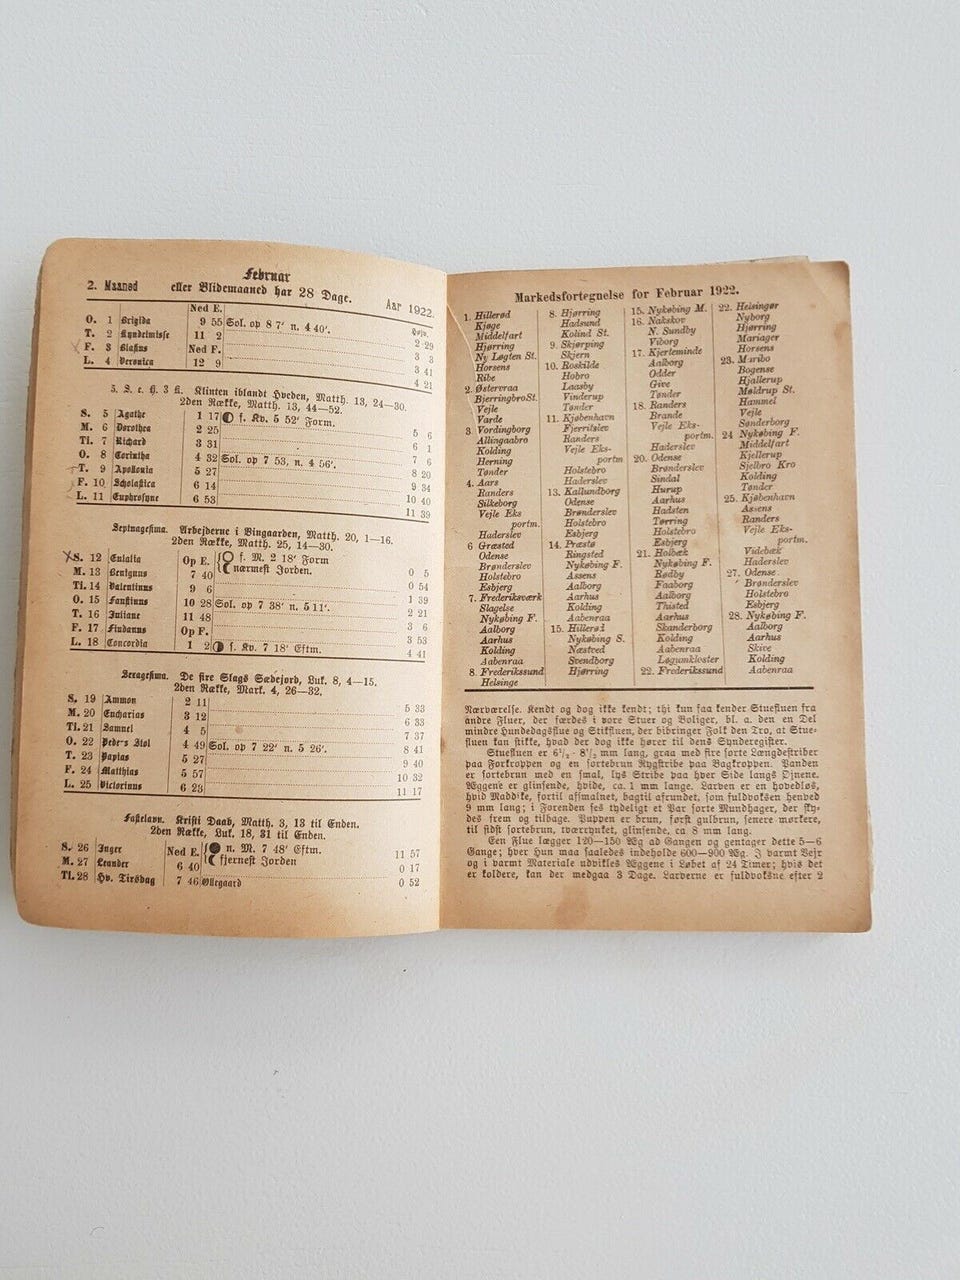 Februar
2. Maaned eller Blidemaaned har 28 Dage. Aar 1922.
Ned E.
O. 1 Brigida 9 55 Sol. op 8 7' n. 4 40'. 2 29
T. 2 Kyndelmisse 11 2 3 3
F. 3 Blasius Ned F. 3 41
L. 4 Veronica 12 9 4 21
5. S. e. H. 3 K. Klinten iblandt Hveden, Matth. 13, 24—30.
2den Række, Matth. 13, 44—52.
S. 5 Agathe 1 17 f. Kv. 5 52' Form. 5 6
M. 6 Dorothea 2 25 6 1
Ti. 7 Richard 3 31 7 6
O. 8 Corintha 4 32 Sol op 7 53, n. 4 56'. 8 20
T. 9 Apollonia 5 27 9 34
F. 10 Scholastica 6 14 10 40
L. 11 Euphrosyne 6 53 11 39
Septuagesima. Arbejderne i Vingaarden, Matth. 20, 1—16.
2den Række, Matth. 25, 14—30.
S. 12 Eulalia Op E. f. M. 2 18' Form 0 5
M. 13 Benignus 7 40 nærmest Jorden. 0 54
Ti. 14 Valentinus 9 6 1 39
O. 15 Faustinus 10 28 Sol. op 7 38' n. 5 11'. 2 21
T. 16 Juliane 11 48 3 6
F. 17 Findanus Op F. 3 53
L. 18 Concordia 1 2 f. Kv. 7 18' Eftm. 4 41
Sexagesima. De fire Slags Sædejord, Luk. 8, 4—15.
2den Række, Mark. 4, 26—32.
S. 19 Ammon 2 11 5 33
M. 20 Eucharias 3 12 6 33
Ti. 21 Samuel 4 5 7 37
O. 22 Peders Stol 4 49 Sol. op 7 22' n. 5 26'. 8 41
T. 23 Papias 5 27 9 40
F. 24 Matthias 5 57 10 32
L. 25 Victorinus 6 23 11 17
Fastelavn. Kristi Daab, Matth. 3, 13 til Enden.
2den Række, Luk. 18, 31 til Enden.
S. 26 Inger Ned E. n. M. 7 48' Eftm. 11 57
M. 27 Leander 6 40 fjernest Jorden 0 17
Ti. 28 Hv. Tirsdag 7 46 Øllegaard 0 52
Markedsfortegnelse for Februar 1922.
1. Hillerød
Kjøge
Middelfart
Hjørring
Ny Løgten St.
Horsens
Ribe
2. Østervraa
Bjerringbro St.
Vejle
Varde
3 Vordingborg
Allingaabro
Kolding
Herning
Tønder
4. Aars
Randers
Silkeborg
Vejle Eks
portm.
Haderslev
6 Græsted
Odense
Brønderslev
Holstebro
Esbjerg
7. Frederiksværk
Slagelse
Nykøbing F.
Aalborg
Aarhus
Kolding
Aabenraa
8. Frederikssund
Helsinge
8. Hjørring
Hadsund
Kolind St.
9. Skjørping
Skjern
10. Roskilde
Hobro
Laasby
Vinderup
Tønder
11. Kjøbenhavn
Fjerritslev
Randers
Vejle Eks-
portm
Holstebro
Haderslev
13. Kallundborg
Odense
Brønderslev
Holstebro
Esbjerg
14. Præstø
Ringsted
Nykøbing F.
Assens
Aalborg
Aarhus
Kolding
Aabenraa
15. Hillerød
Nykøbing S.
Næstved
Svendborg
Hjørring
15. Nykøbing M.
16. Nakskov
N. Sundby
Viborg
17. Kjerteminde
Aalborg
Odder
Give
Tønder
18. Randers
Brande
Vejle Eks-
portm.
Haderslev
20. Odense
Brønderslev
Sindal
Hurup
Aarhus
Hadsten
Tørring
Holstebro
Esbjerg
21. Holbæk
Nykøbing F.
Rødby
Faaborg
Aalborg
Thisted
Aarhus
Skanderborg
Kolding
Aabenraa
Løgumkloster
22. Frederikssund
22. Helsingør
Nyborg
Hjørring
Mariager
Horsens
23. Maribo
Bogense
Hjallerup
Møldrup St.
Hammel
Vejle
Sønderborg
24 Nykøbing F.
Middelfart
Kjellerup
Sjelbro Kro
Kolding
Tønder
25. Kjøbenhavn
Assens
Randers
Vejle Eks-
portm.
Videbæk
Haderslev
27. Odense
Brønderslev
Holstebro
Esbjerg
28. Nykøbing F.
Aalborg
Aarhus
Skive
Kolding
Aabenraa
Nærværelse. Kendt og dog ikke kendt; thi kun faa kender Stuefluen fra
andre Fluer, der færdes i vore Stuer og Boliger, bl. a. den en Del
mindre Hundedagsflue og Stikfluen, der bibringer Folk den Tro, at Stue-
fluen kan stikke, hvad der dog ikke hører til dens Synderegister.
Stuefluen er 6½ - 8½ mm lang, graa med fire sorte Længdestriber
paa Forkroppen og en sortebrun Rygstribe paa Bagkroppen. Panden
er sortebrun med en smal, lys Stribe paa hver Side langs Øjnene.
Æggene er glinsende, hvide, ca. 1 mm lange. Larven er en hovedløs,
hvid Maddike, fortil afsmalnet, bagtil afrundet, som fuldvoksen henved
9 mm lang; i Forenden ses tydeligt et Par sorte Mundhager, der sky-
des frem og tilbage. Puppen er brun, først gulbrun, senere mørkere,
til sidst sortebrun, tværrynket, glinsende, ca 8 mm lang.
Een Flue lægger 120—150 Æg ad Gangen og gentager dette 5—6
Gange; hver Hun maa saaledes indeholde 600—900 Æg. I varmt Vejr
og i varmt Materiale udvikles Æggene i Løbet af 24 Timer; hvis det
er koldere, kan der medgaa 3 Dage. Larverne er fuldvoksne efter 2